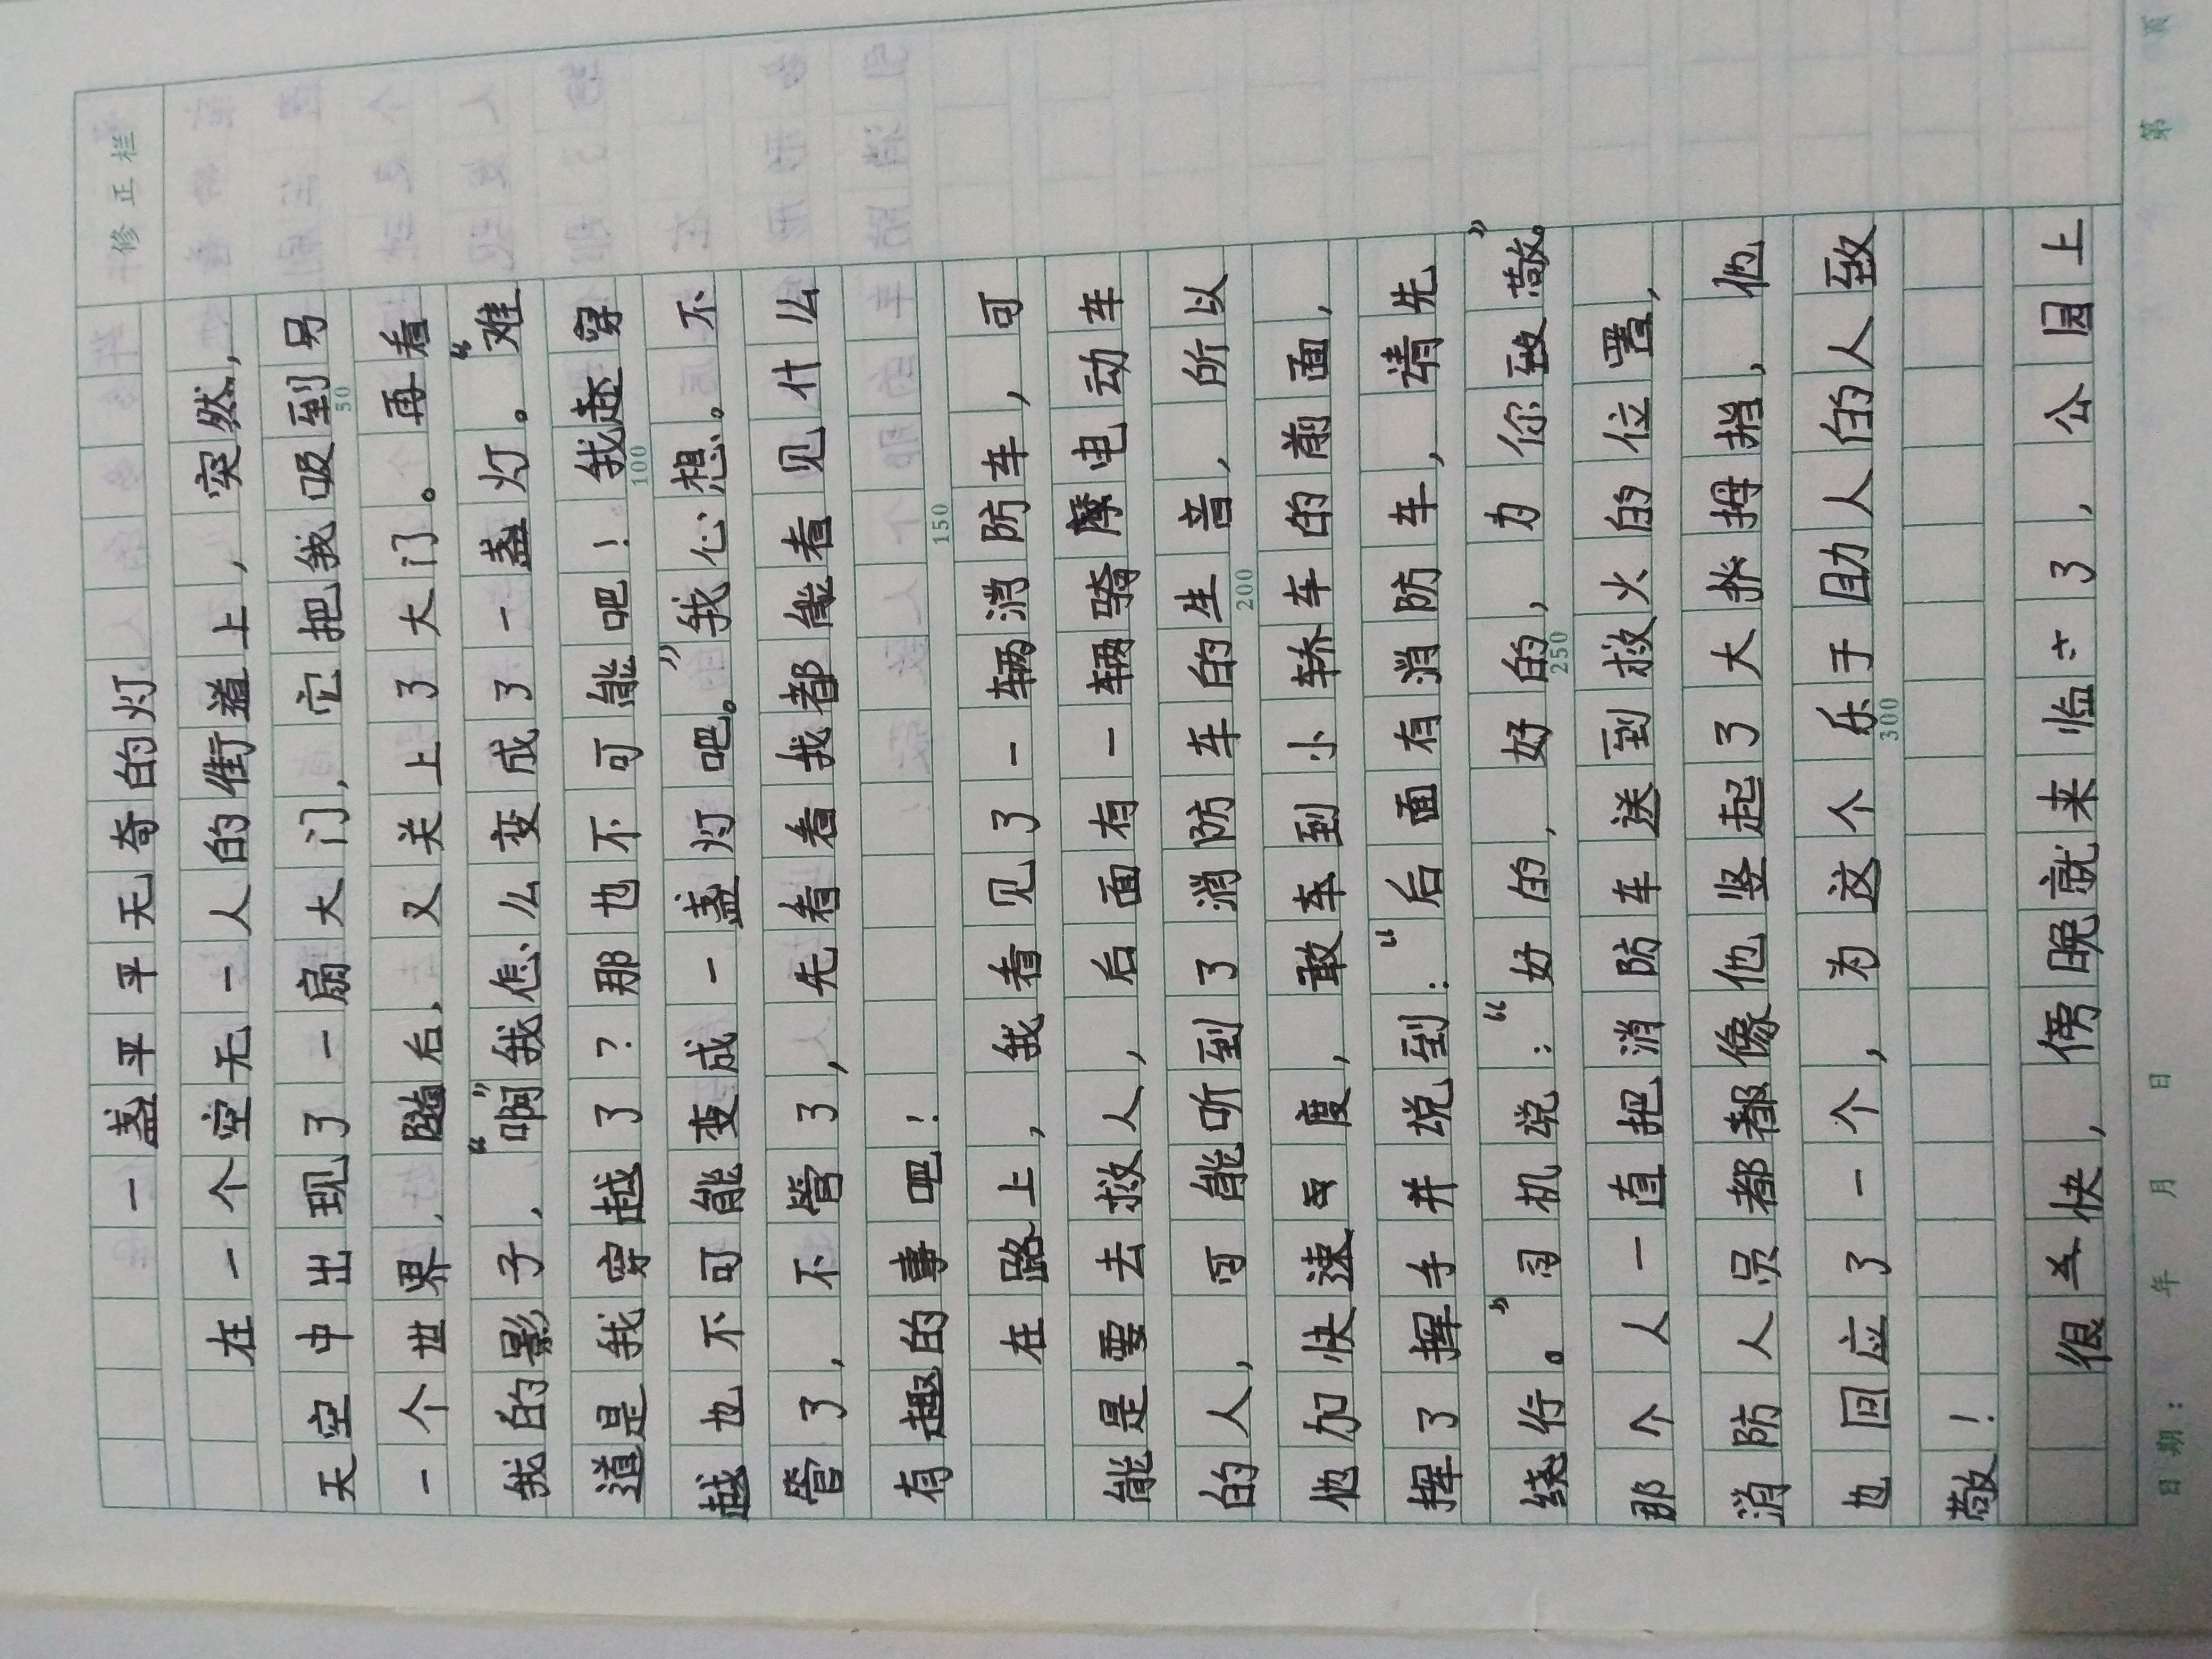 修正栏
一盏平平无奇的灯
在一个空无一人的街道上，突然，
天空中出现了一扇大门，它把我吸到另
一个世界，随后，又关上了大门。再看
我的影子，“啊”我怎么变成了一盏灯。“难
道是我穿越了？那也不可能吧！我还穿
越也不可能变成一盏灯吧。”我心想。不
管了，不管了，先看看我都能看见什么
有趣的事吧！
在路上，我看见了一辆消防车，可
能是要去救人，后面有一辆骑摩电动车
的人，可能听到了消防车的生音，所以
他加快速度，敢车到小轿车的前面，
挥了挥手并说到：“后面有消防车，请先
绕行。”司机说：“好的，好的，为你致敬。”
那个人一直把消防车送到救火的位置，
消防人员都都像他竖起了大拇指，他
也回应了一个，为这个乐于助人的人致
敬！
很快，傍晚就来临了，公园上
50
100
150
200
250
300
日期：　年　月　日　第　页